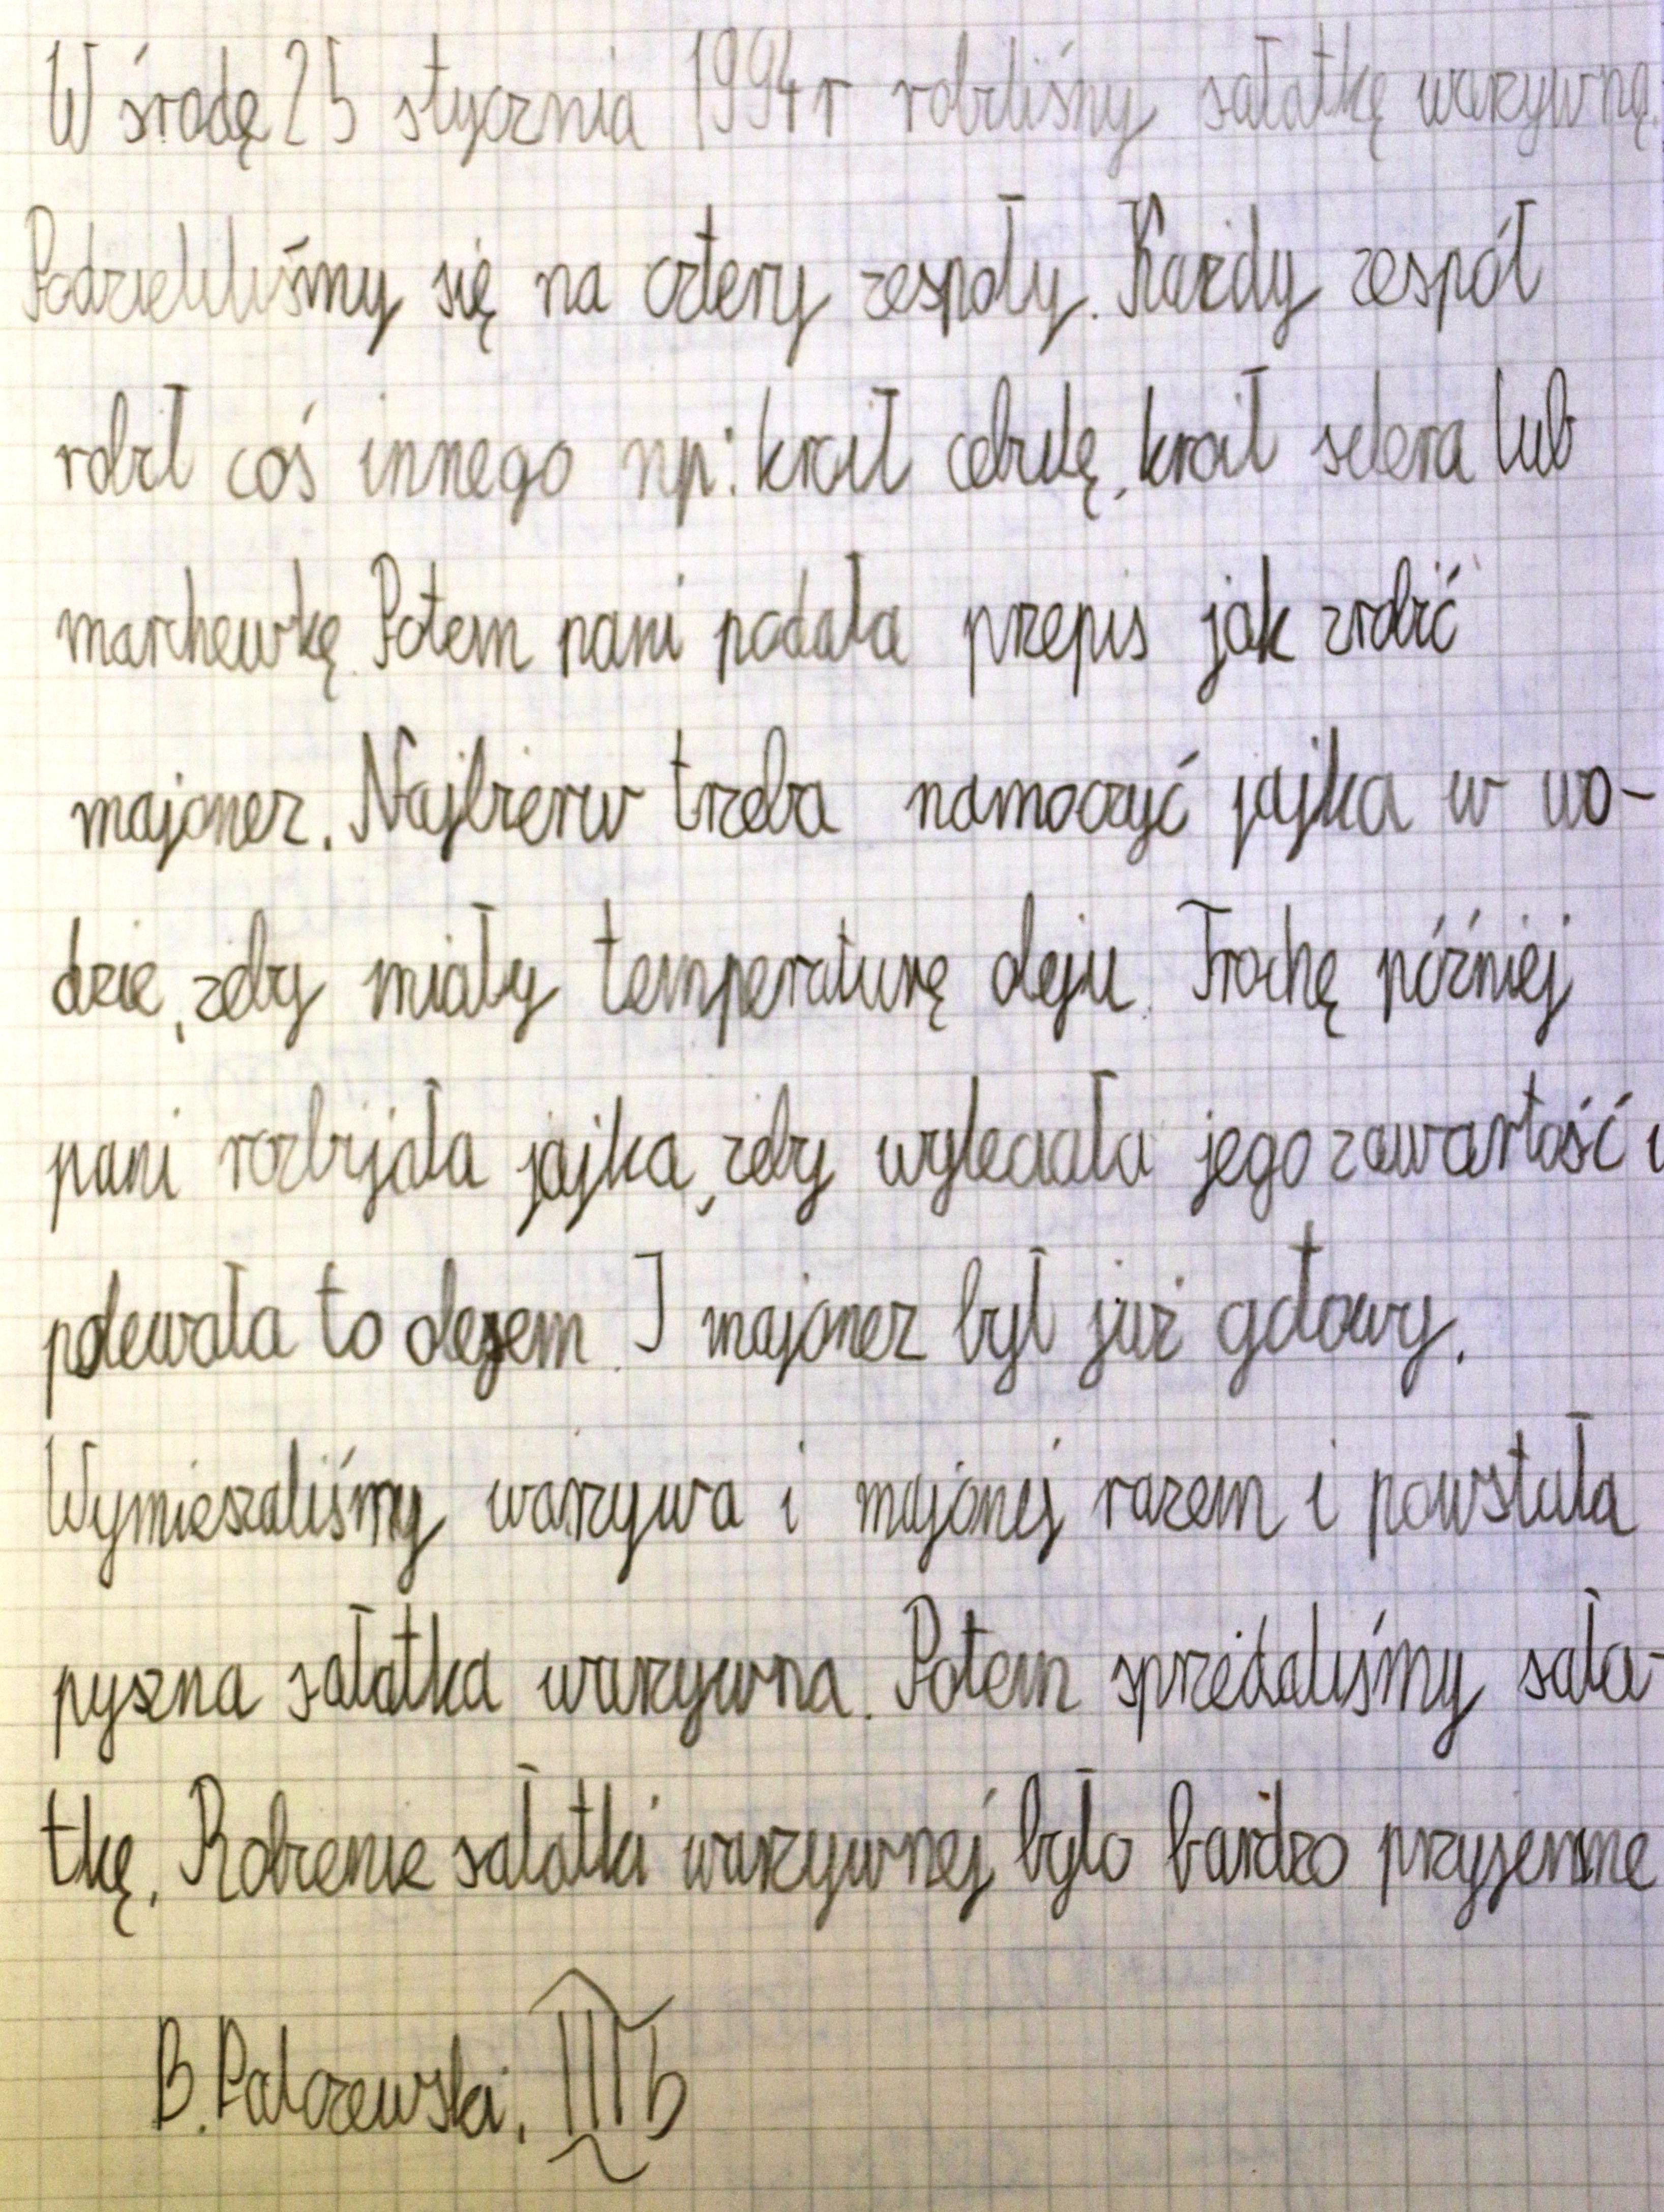 W środę 25 stycznia 1994r robiliśmy sałatkę warzywną.
Podzieliliśmy się na cztery zespoły. Każdy zespół
robił coś innego np: kroił cebulę, kroił selera lub
marchewkę. Potem pani podała przepis jak zrobić
majonez. Najbierw trzeba namoczyć jajka w wo-
dzie, żeby miały temperaturę oleju. Trochę później
pani rozbijała jajka, żeby wyleciała jego zawartość i
polewała to olejem. I majonez był już gotowy.
Wymieszaliśmy warzywa i majonej razem i powstała
pyszna sałatka warzywna. Potem sprzedaliśmy sała-
tkę. Robienie sałatki warzywnej było bardzo przyjemne
B. III b